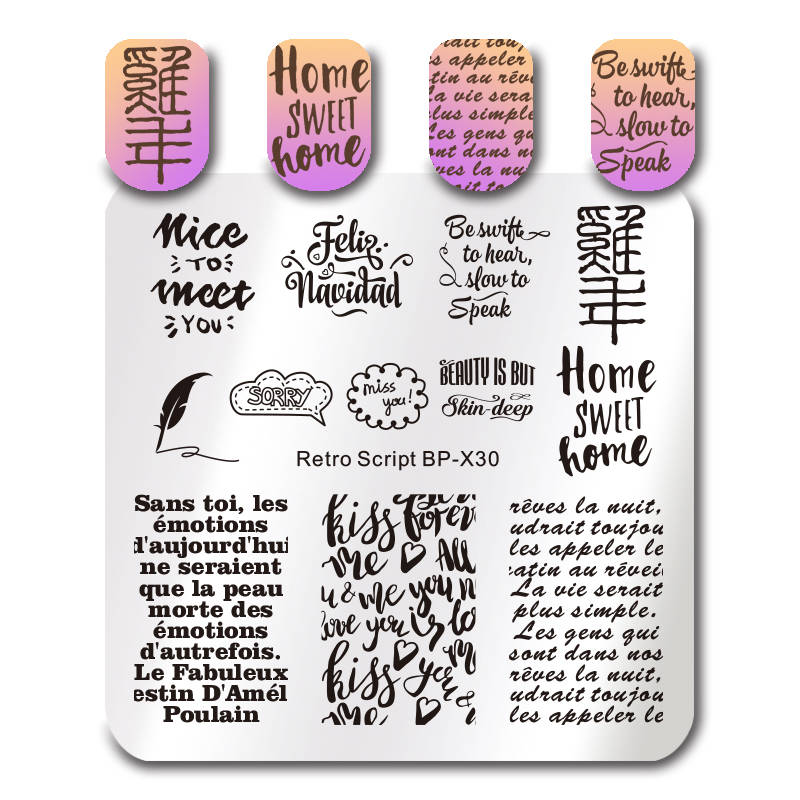 NEW
YORK
Home
SWEET
home
rait touj
s appeler
tin au rêve
la vie sera
lus simple
Les gens qu
ont dans no
ves la nuit
Be swift
to hear,
slow to
Speak
Nice
TO
meet
YOU
Feliz
Navidad
Be swift
to hear,
slow to
Speak
NEW
YORK
SORRY
miss
you!
BEAUTY IS BUT
Skin-deep
Home
SWEET
home
Retro Script BP-X30
Sans toi, les
émotions
d'aujourd'hui
ne seraient
que la peau
morte des
émotions
d'autrefois.
Le Fabuleux
estin D'Amél
Poulain
kiss forev
me All
u & me you n
love you is lo
kiss you
me
rêves la nuit,
udrait toujou
les appeler le
atin au révei
La vie serait
plus simple.
Les gens qui
sont dans nos
rêves la nuit,
udrait toujou
les appeler le